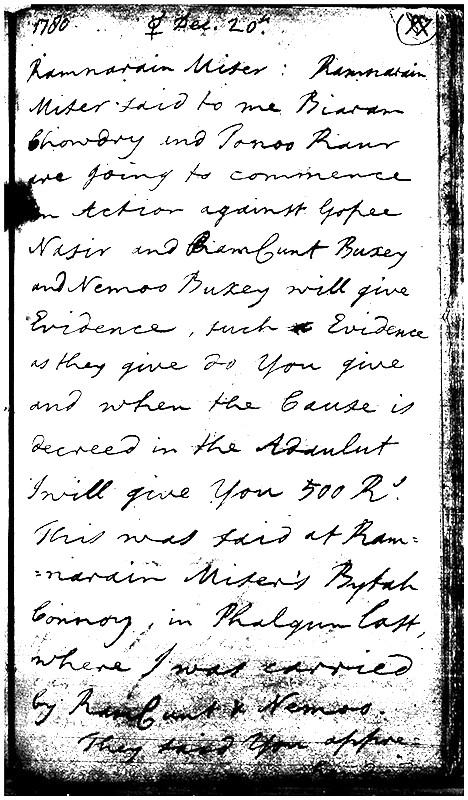 1780 ☿ Dec. 20th.
Ramnarain Miser: Ramnarain
Miser said to me Biaram
Chowdry and Ponoo Raur
are going to commence
an Action against Gopee
Nasir and RamCunt Buxey
and Nemoo Buxey will give
Evidence, such Evidence
as they give do You give
and when the Cause is
decreed in the Adaulut
I will give You 500 Rs.
This was said at Ram=
=narain Miser's Bytah
Connoy, in Phalgun last,
where I was carried
by RamCunt & Nemoo.
They said You appre-